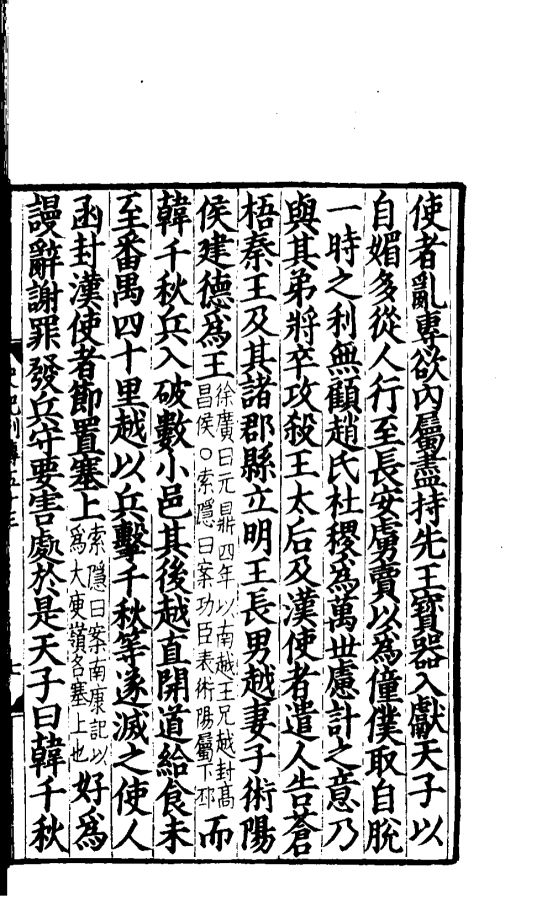 使者亂專欲内屬盡持先王寳器入獻天子以
自媚多從人行至長安虜賣以爲僮僕取自脫
一時之利無顧趙氏社稷爲萬世慮計之意乃
與其弟將卒攻殺王太后及漢使者遣人告蒼
梧秦王及其諸郡縣立明王長男越妻子術陽
侯建德爲王徐廣曰元鼎四年以南越王兄越封高昌侯○索隱曰案功臣表術陽屬下邳而
韓千秋兵入破數小邑其後越直開道給食未
至番禺四十里越以兵擊千秋等遂滅之使人
函封漢使者節置塞上索隱曰案南康記以爲大庾嶺名塞上也好爲
謾辭謝罪發兵守要害處於是天子曰韓千秋